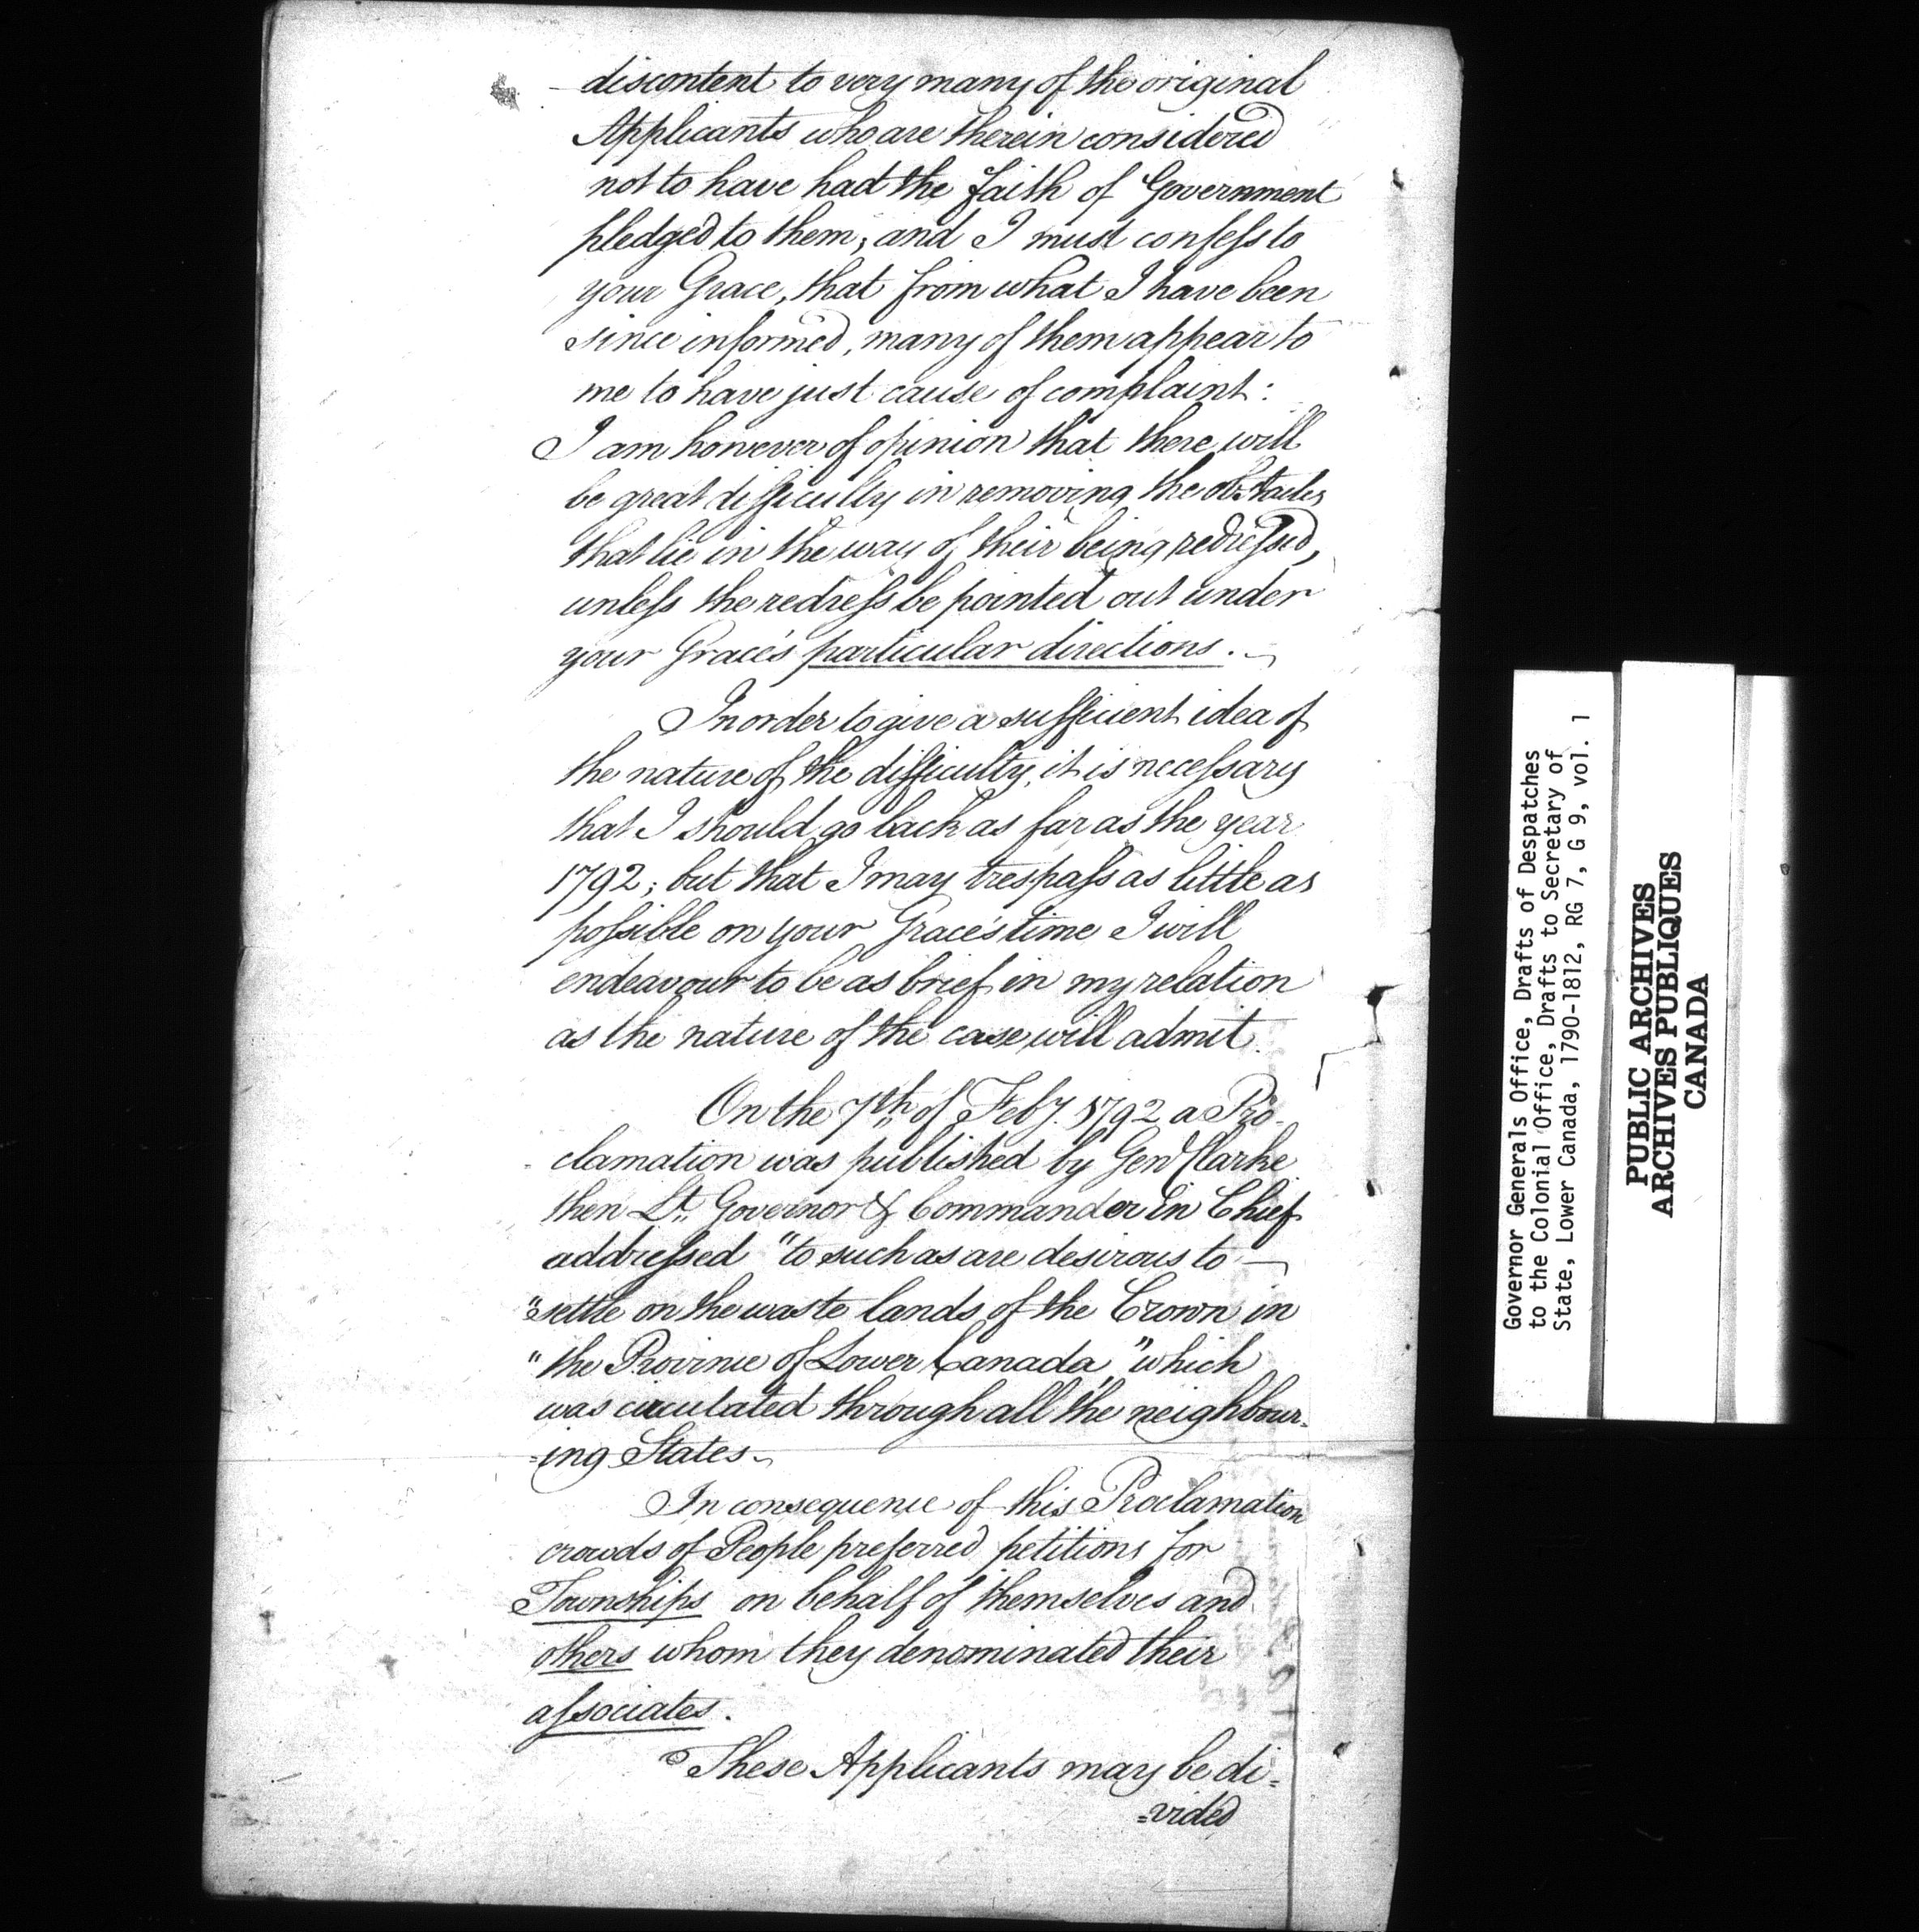 discontent to very many of the original
Applicants who are therein considered
not to have had the faith of Government
pledged to them; and I must confess to
your Grace, that from what I have been
since informed, many of them appear to
me to have just cause of complaint:
I am however of opinion that there will
be great difficulty in removing the obstacles
that lie in the way of their being redressed,
unless the redress be pointed out under
your Grace's particular directions.
In order to give a sufficient idea of
the nature of the difficulty, it is necessary
that I should go back as far as the year
1792; but that I may trespass as little as
possible on your Grace's time I will
endeavour to be as brief in my relation
as the nature of the case will admit.
On the 7th of Feby. 1792 a Pro-
clamation was published by Genl Clarke
then Lt. Governor & Commander in Chief
addressed "to such as are desirous to
"settle on the waste lands of the Crown in
"the Province of Lower Canada," which
was circulated through all the neighbour-
=ing States
In consequence of this Proclamation
crowds of People preferred petitions for
Townships on behalf of themselves and
others whom they denominated their
associates.
These Applicants may be di=
=vided
Governor Generals Office, Drafts of Despatches
to the Colonial Office, Drafts to Secretary of
State, Lower Canada, 1790-1812, RG 7, G 9, vol. 1
PUBLIC ARCHIVES
ARCHIVES PUBLIQUES
CANADA